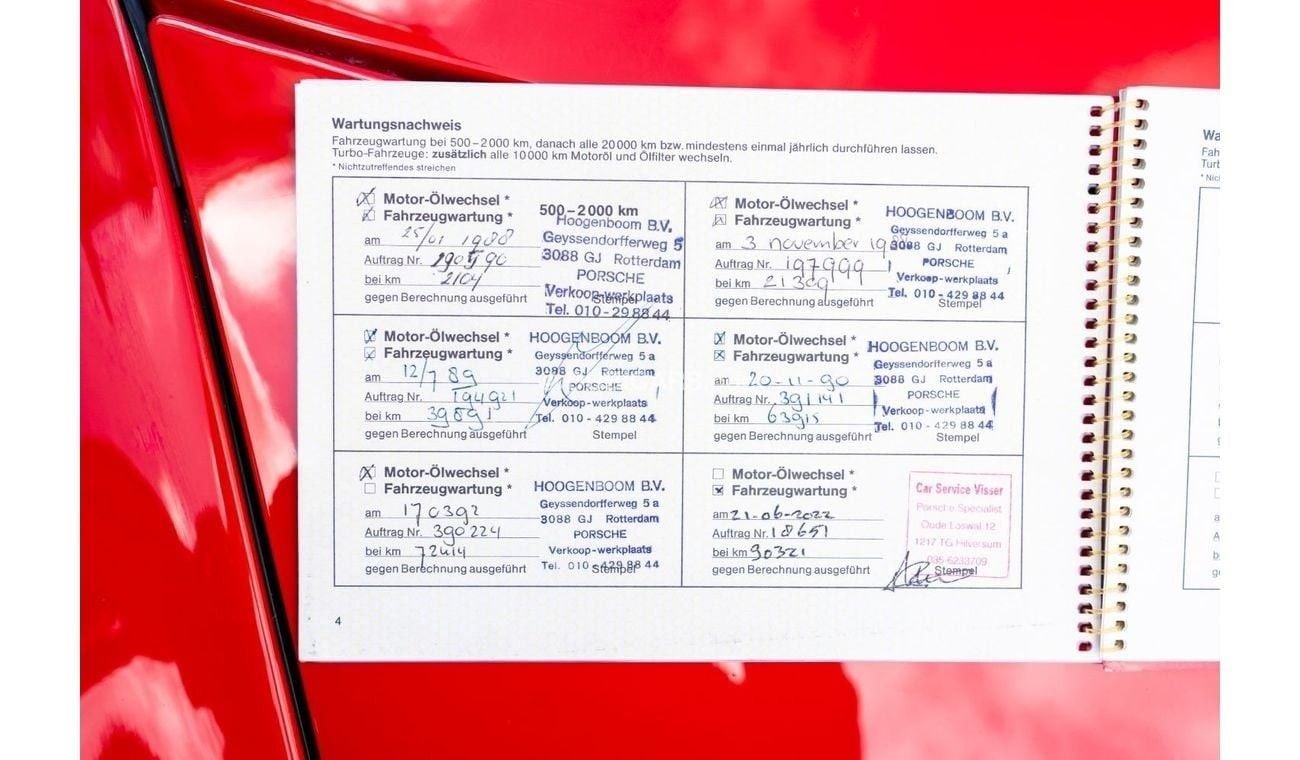 Wartungsnachweis
Fahrzeugwartung bei 500–2000 km, danach alle 20000 km bzw. mindestens einmal jährlich durchführen lassen.
Turbo-Fahrzeuge: zusätzlich alle 10000 km Motoröl und Ölfilter wechseln.
* Nichtzutreffendes streichen
Motor-Ölwechsel *
Fahrzeugwartung *
500–2000 km
am 25/01 1988
Auftrag Nr.
bei km 2104
gegen Berechnung ausgeführt
Stempel
Hoogenboom B.V.
Geyssendorfferweg 5
3088 GJ Rotterdam
PORSCHE
Verkoop-werkplaats
Tel. 010-298844
Motor-Ölwechsel *
Fahrzeugwartung *
am 3 november 19
Auftrag Nr. 197999
bei km 21309
gegen Berechnung ausgeführt
Stempel
HOOGENBOOM B.V.
Geyssendorfferweg 5a
3088 GJ Rotterdam
PORSCHE
Verkoop-werkplaats
Tel. 010-4298844
Motor-Ölwechsel *
Fahrzeugwartung *
am 12/7 89
Auftrag Nr. 194921
bei km 39891
gegen Berechnung ausgeführt
Stempel
HOOGENBOOM B.V.
Geyssendorfferweg 5a
3088 GJ Rotterdam
PORSCHE
Verkoop-werkplaats
Tel. 010-4298844
Motor-Ölwechsel *
Fahrzeugwartung *
am 20-11-90
Auftrag Nr. 391141
bei km 63915
gegen Berechnung ausgeführt
Stempel
HOOGENBOOM B.V.
Geyssendorfferweg 5a
3088 GJ Rotterdam
PORSCHE
Verkoop-werkplaats
Tel. 010-4298844
Motor-Ölwechsel *
Fahrzeugwartung *
am 170392
Auftrag Nr. 390224
bei km 72414
gegen Berechnung ausgeführt
Stempel
HOOGENBOOM B.V.
Geyssendorfferweg 5a
3088 GJ Rotterdam
PORSCHE
Verkoop-werkplaats
Tel. 010-4298844
Motor-Ölwechsel *
Fahrzeugwartung *
am 21-06-2022
Auftrag Nr. 18651
bei km 90321
gegen Berechnung ausgeführt
Stempel
Car Service Visser
Porsche Specialist
Oude Loswal 12
1217 TG Hilversum
035-6233709
4